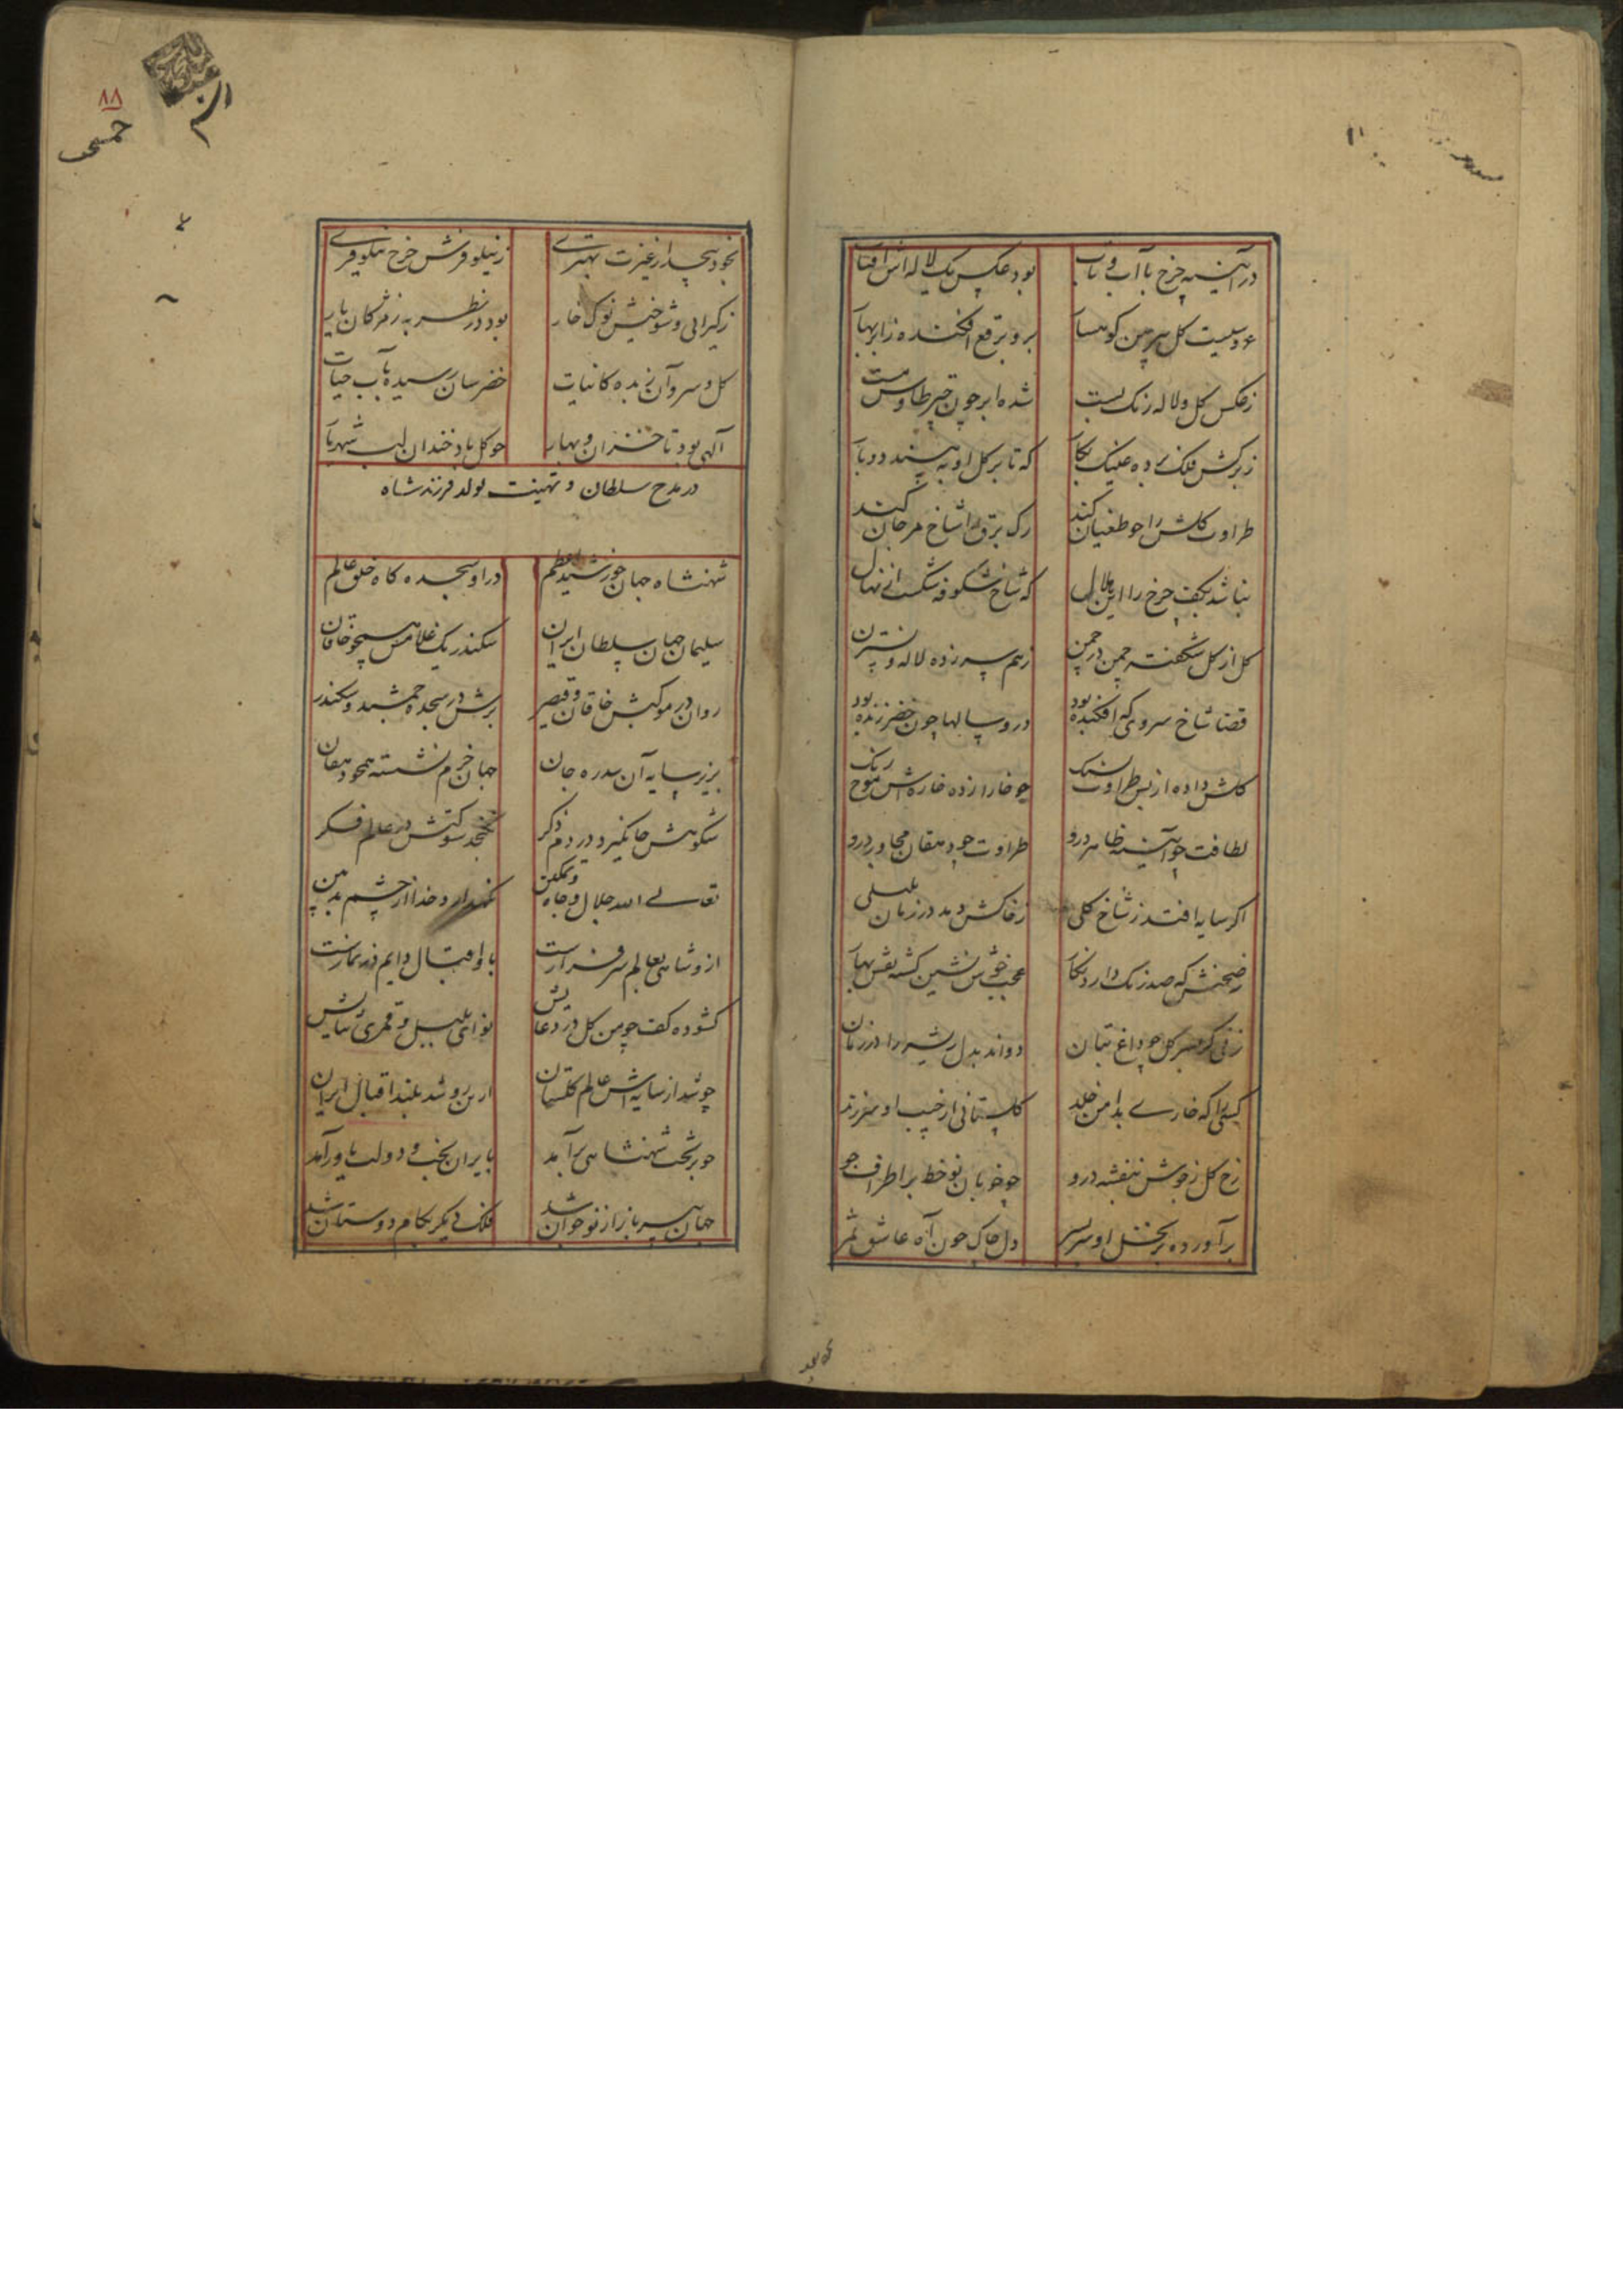 در آیینه چرخ با آب و تاب بود عکس یک لاله اش آفتاب
عروسیست گل پیرهن کوهسار برو برقع افکنده ز ابر بهار
ز عکس گل و لاله رنک بست شده ابر چون چتر طاوس مست
فلک برده عینک بکار که تا بر گل او به بیند دوبار
طراوت گلش را چو طغیان کند رک برق را شاخ مرجان کند
نباشد بکف چرخ را این هلال که شاخ شکوفه شکست از نهال
گل از گل شکفته چمن در چمن ز هم سر زده لاله و نسترن
قضا شاخ سروی که افکنده بود درو سالها چون خضر زنده بود
گلش داده از بس طراوت بسنک چو خارا زده خاره اش موج رنک
لطافت چو آیینه ظاهر درو طراوت چو دهقان مجاور درو
اکر سایه افتد ز شاخ گلی ز خاکش دمد در زمان بلبلی
ز صحنش که صد رنک دارد نکار عجب خوش نشین کشته نقش بهار
زنی کر بسر گل چو داغ بتان دواند بدل ریشه را در زمان
کسی را که خاری بدامن خلد گلستانی از جیب او سر زند
رخ گل ز جوش بنفشه درو چو خوبان نو خط بر اطراف جو
برآورده بر نخل او سر بسر دل چاک چون آه عاشق ثمر
بخود پیچد از غیرت بهتری ز نیلوفرش چرخ نیلوفری
ز گیرائی و شوخیش نوک خار بود در نظر به ز مژکان یار
گل و سرو آن زبده کاینات خضرسان رسیده بآب حیات
آلهی بود تا خزان و بهار چو گل باد خندان لب شهریار
در مدح سلطان و تهنیت تولد فرزند شاه
شهنشاه جهان خورشید اعظم در او سجده کاه خلق عالم
سلیمان جهان سلطان ایران سکندر یک غلامش همچو خاقان
روان در موکبش خاقان و قیصر برش در سجده جمشید و سکندر
بزیر سایه آن سدره جان جهان خرم نشسته همچو دهقان
شکوهش جا نکیرد در دم ذکر نکنجد شوکتش در عالم فکر
تعالی الله جلال و جاه و تمکین نکهدارد خدا از چشم بد بین
ازو شاهی بعالم سرفرازست باو اقبال دایم در نمازست
کشوده کف چو من گل در دعایش نوای بلبل و قمری ثنایش
چو شد از سایه اش عالم گلستان ازین رو شد بلند اقبال ایران
چو بر تخت شهنشاهی برآمد بایران بخت و دولت یاور آمد
جهان پیر باز از نو جوان شد فلک دیکر بکام دوستان شد
۸۸
خمسی